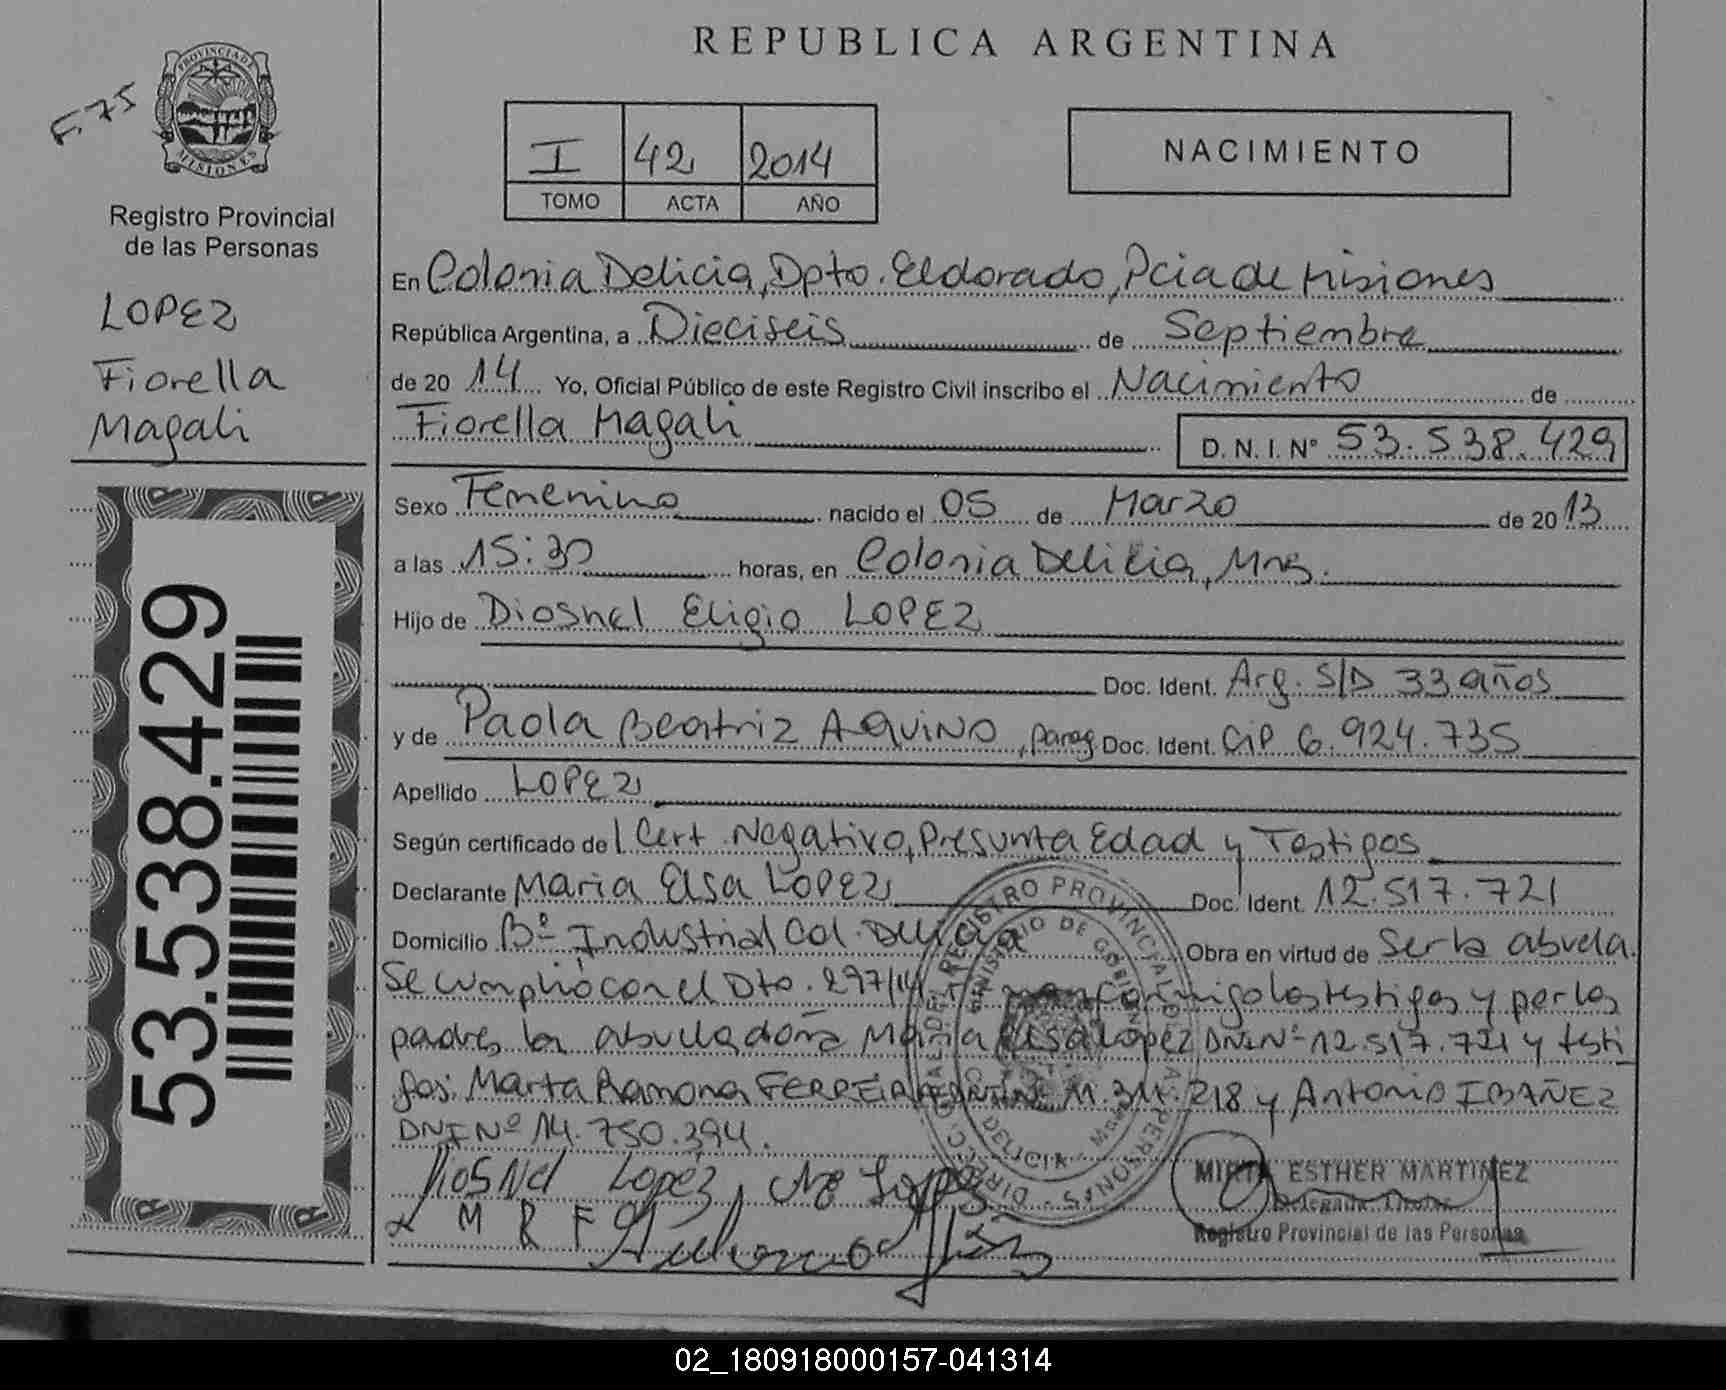 REPUBLICA ARGENTINA
F.75
PROVINCIA DE MISIONES
Registro Provincial
de las Personas
LOPEZ
Fiorella
Magali
53.538.429
I 42 2014
TOMO ACTA AÑO
NACIMIENTO
En Colonia Delicia, Dpto. Eldorado, Pcia de Misiones
República Argentina, a Dieciseis de Septiembre
de 20 14 Yo, Oficial Público de este Registro Civil inscribo el Nacimiento de
Fiorella Magali D. N. I. Nº 53.538.429
Sexo Femenino nacido el 05 de Marzo de 20 13
a las 15:30 horas, en Colonia Delicia, Mns.
Hijo de Diosnel Eligio LOPEZ
Doc. Ident. Arg. S/D 33 años
y de Paola Beatriz AQUINO, parag Doc. Ident. CIP 6.924.735
Apellido LOPEZ
Según certificado de 1 Cert. Negativo, Presunta Edad y Testigos
Declarante Maria Elsa LOPEZ Doc. Ident. 12.517.721
Domicilio Bº Industrial Col. Delicia Obra en virtud de Ser la abuela.
Se cumplió con el Dto. 297/14 conmigo los testigos y por los
padres la abuela doña Maria Elsa Lopez DNI Nº 12.517.721 y testi
gos: Marta Ramona FERREIRA DNI Nº 11. 218 y Antonio IBAÑEZ
DNI Nº 14.750.394.
Diosnel Lopez
M R F
REGISTRO PROVINCIAL DE LAS PERSONAS
MINISTERIO DE GOBIERNO
DELICIA
MIRTA ESTHER MARTINEZ
Delegada Titular
Registro Provincial de las Personas
02_180918000157-041314